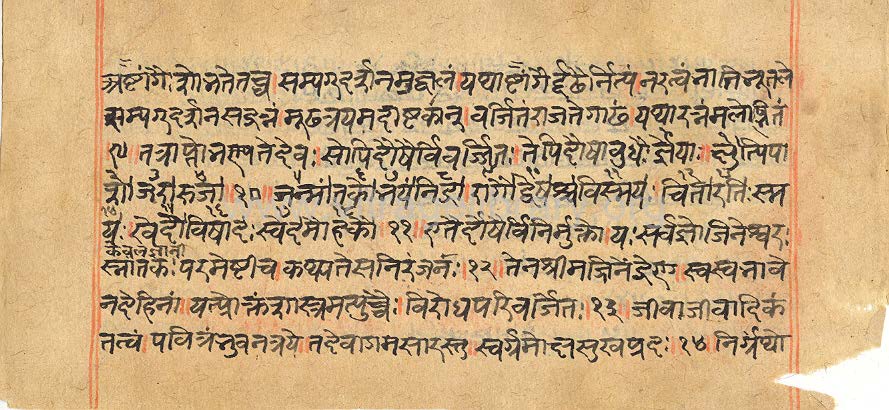 अष्टांगैः शोभते तच्च सम्यग्दर्शनमुज्वलं यथाष्टांगैर्दृढैर्नित्यं नरत्वं नाति भूतले
सम्यग्दर्शनसद्रत्नं मूढत्रयमदाष्टकान् वर्जितं राजते गाढं यथा रत्नं मलोज्झितं
तत्राप्तो भण्यते देवः सोपि दोषैर्विवर्जितः तेपि दोषा बुधैर्ज्ञेयाः क्षुत्पिपा
शे जरा रुजा १० जन्मांतको भयं निद्रा रागो द्वेषश्च विस्मयः चिंतारतिः स्म
यः खेदो विषादः स्वेदमोहको ११ एतैर्दोषैर्विनिर्मुक्तो यः सर्वज्ञो जिनेश्वरः
केवलज्ञानी
स्नातकः परमेष्टी च कथ्यते स निरंजनः १२ तेन श्रीमज्जिनेंद्रेण स्वस्वभावे
न देहिनां यत्प्रोक्तं शास्त्रमत्युच्चैः विरोधपरिवर्जितः १३ जीवाजीवादिकं
तत्वं पवित्रं भुवनत्रये तदेवागमसारस्तु स्वर्गमोक्षसुखप्रदः १४ निर्ग्रंथो